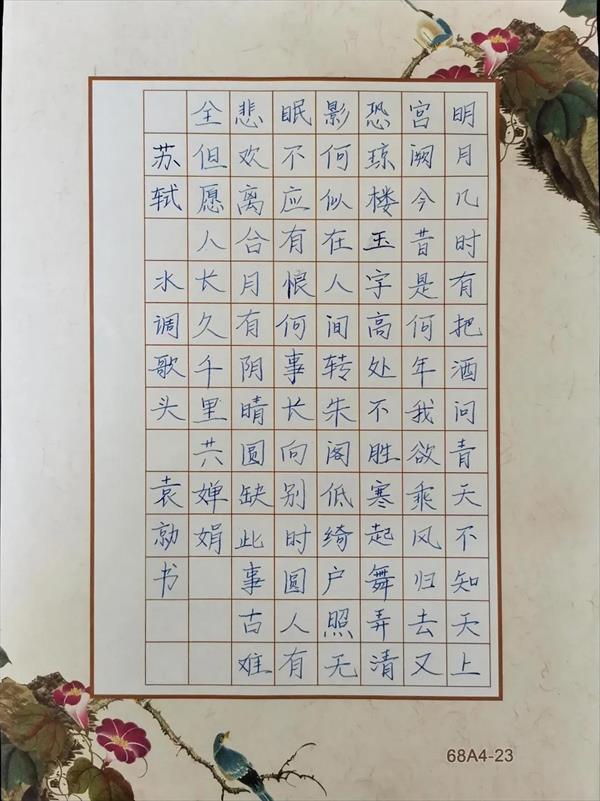 明月几时有把酒问青天不知天上
宫阙今昔是何年我欲乘风归去又
恐琼楼玉字高处不胜寒起舞弄清
影何似在人间转朱阁低绮户照无
眠不应有恨何事长向别时圆人有
悲欢离合月有阴晴圆缺此事古难
全但愿人长久千里共婵娟
苏轼 水调歌头 袁书
68A4-23